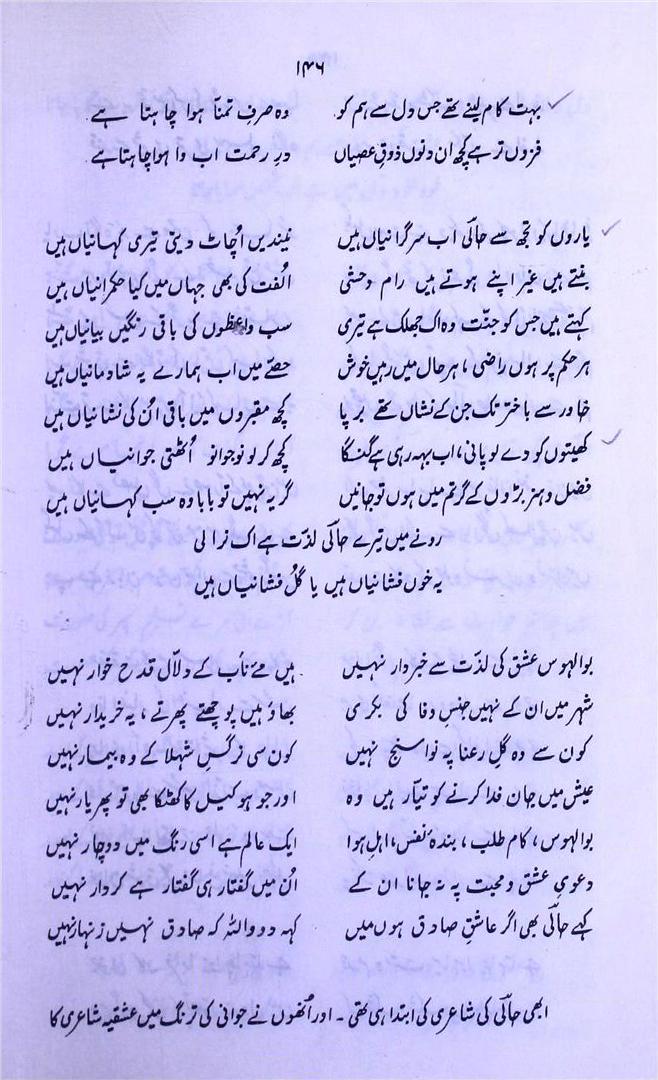 ۱۴۶
بہت کام لینے تھے جس دل سے ہم کو وہ صرفِ تمنّا ہوا چاہتا ہے
فزوں تر ہے کچھ ان دنوں ذوقِ عصیاں درِ رحمت اب وا ہوا چاہتا ہے
یاروں کو تجھ سے حالؔی اب سرگرانیاں ہیں نیندیں اُچاٹ دیتی تیری کہانیاں ہیں
بنتے ہیں غیر اپنے ہوتے ہیں رام وحشی اُلفت کی بھی جہاں میں کیا حکمرانیاں ہیں
کہتے ہیں جس کو جنّت وہ اک جھلک ہے تیری سب واعظوں کی باقی رنگیں بیانیاں ہیں
ہر حکم پر ہوں راضی، ہر حال میں رہیں خوش حصّے میں اب ہمارے یہ شادمانیاں ہیں
خاور سے باختر تک جن کے نشاں تھے برپا کچھ مقبروں میں باقی اُن کی نشانیاں ہیں
کھیتوں کو دے لو پانی، اب بہہ رہی ہے گنگا کچھ کر لو نوجوانو اُٹھتی جوانیاں ہیں
فضل و ہنر بڑوں کے گر تم میں ہوں تو جانیں گر یہ نہیں تو بابا وہ سب کہانیاں ہیں
رونے میں تیرے حالؔی لذّت ہے اک نرالی
یہ خوں فشانیاں ہیں یا گُل فشانیاں ہیں
بوالہوس عشق کی لذّت سے خبردار نہیں ہیں مئے ناب کے دلّال قدح خوار نہیں
شہر میں ان کے نہیں جنسِ وفا کی بکری بھاؤ ہیں پوچھتے پھرتے، یہ خریدار نہیں
کون سے وہ گلِ رعنا پہ نواسنج نہیں کون سی نرگسِ شہلا کے وہ بیمار نہیں
عیش میں جان فدا کرنے کو تیّار ہیں وہ اور جو ہو کیل کا کھٹکا بھی تو پھر یار نہیں
بوالہوس، کام طلب، بندۂ نفس، اہلِ ہوا ایک عالم ہے اسی رنگ میں دوچار نہیں
دعویِ عشق و محبت پہ نہ جانا ان کے اُن میں گفتار ہی گفتار ہے کردار نہیں
کہے حالؔی بھی اگر عاشقِ صادق ہوں میں کہہ دو واللہ کہ صادق نہیں زنہار نہیں
ابھی حالؔی کی شاعری کی ابتدا ہی تھی۔ اور اُنھوں نے جوانی کی ترنگ میں عشقیہ شاعری کا